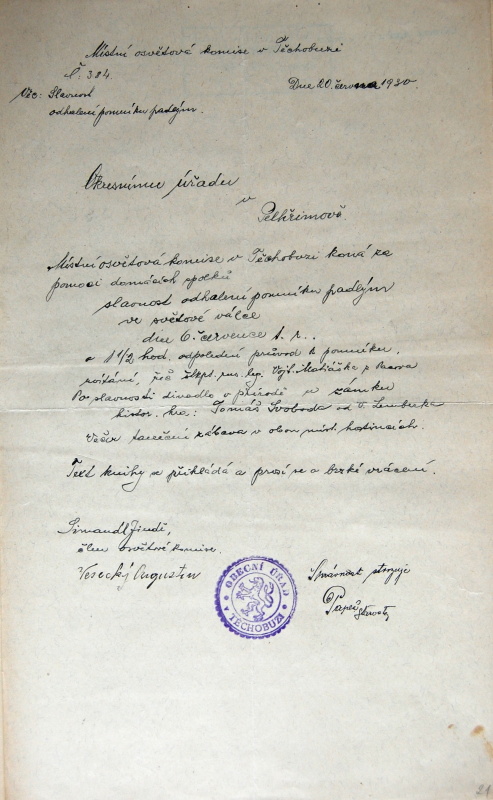 Místní osvětová komise v Těchobuzi
Č: 384.
Dne 20. června 1930.
Věc: Slavnost
odhalení pomníku padlým.
Okresnímu úřadu
v
Pelhřimově
Místní osvětová komise v Těchobuzi koná za
pomoci domácích spolků
slavnost odhalení pomníku padlým
ve světové válce
dne 6. července t. r..
o 1 1/2 hod. odpolední průvod k pomníku,
řeč rus. leg. Vojt. z
Po slavnosti divadlo v přírodě u zámku
histor. hra: Tomáš Svoboda od
Večer taneční zábava v obou míst. hostincích.
Text knihy se přikládá a prosí se o brzké vrácení.
Simandl Jindř.,
člen osvětové komise.
Vesecký Augustin
Správnost stvrzuje
starosta
OBECNÍ ÚŘAD
V TĚCHOBUZI
21